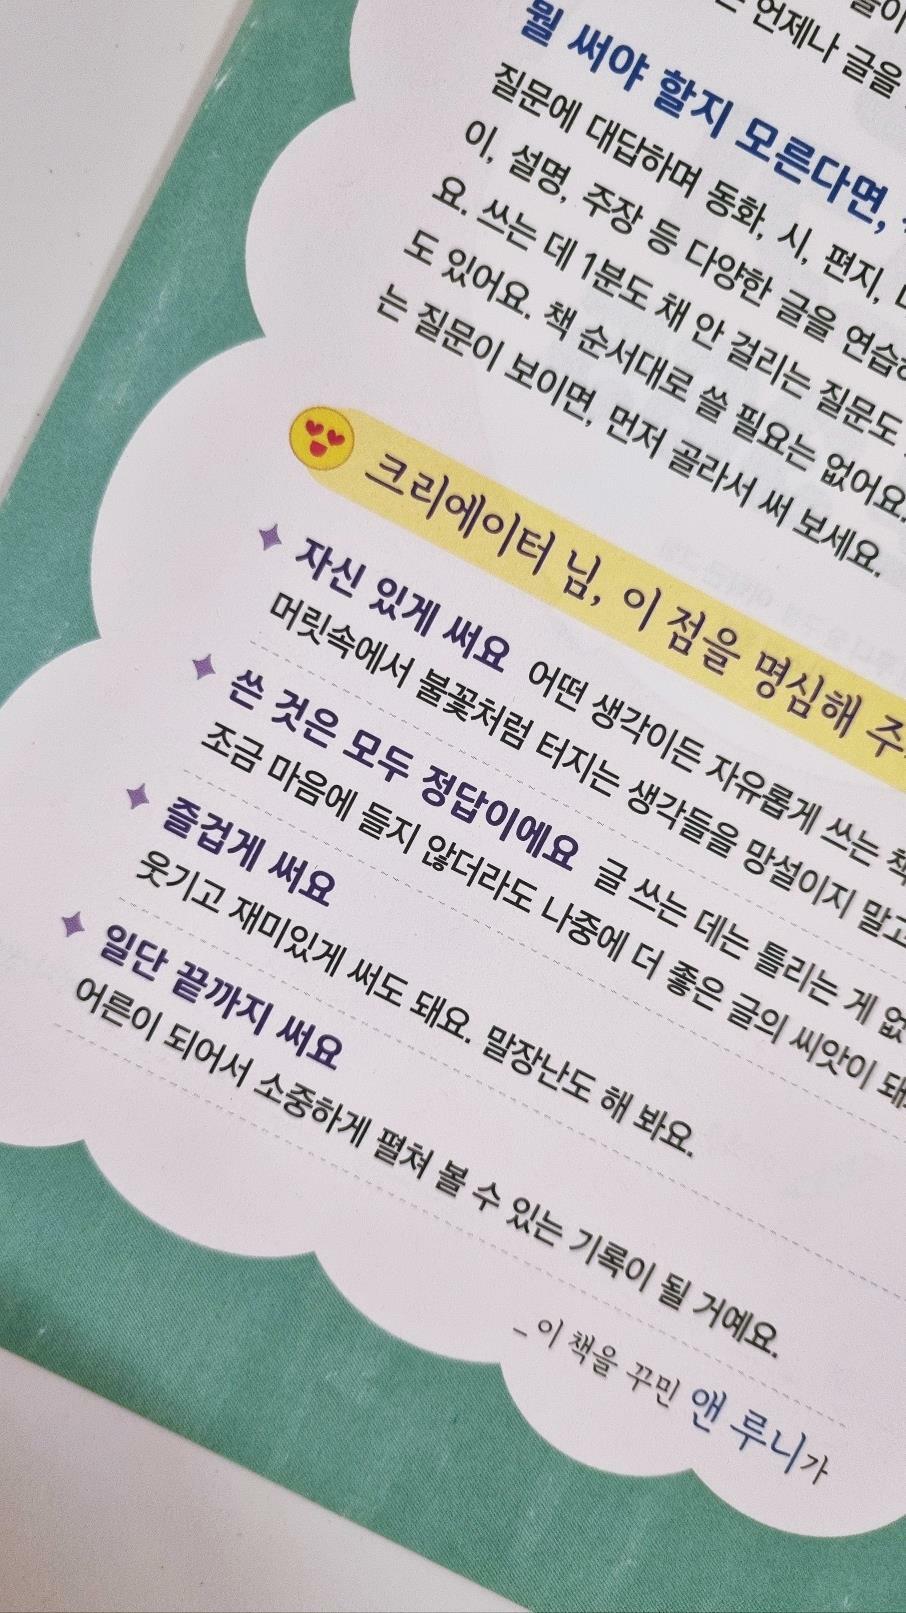 언제나 글을
뭘 써야 할지 모른다면,
질문에 대답하며 동화, 시, 편지,
이, 설명, 주장 등 다양한 글을
요. 쓰는 데 1분도 채 안 걸리는 질문도
도 있어요. 책 순서대로 쓸 필요는 없어요.
는 질문이 보이면, 먼저 골라서 써 보세요.
크리에이터 님, 이 점을 명심해
자신 있게 써요 어떤 생각이든 자유롭게 쓰는
머릿속에서 불꽃처럼 터지는 생각들을 망설이지 말고
쓴 것은 모두 정답이에요 글 쓰는 데는 틀리는 게
조금 마음에 들지 않더라도 나중에 더 좋은 글의 씨앗이
즐겁게 써요
웃기고 재미있게 써도 돼요. 말장난도 해 봐요.
일단 끝까지 써요
어른이 되어서 소중하게 펼쳐 볼 수 있는 기록이 될 거예요.
_이 책을 꾸민 앤 루니가